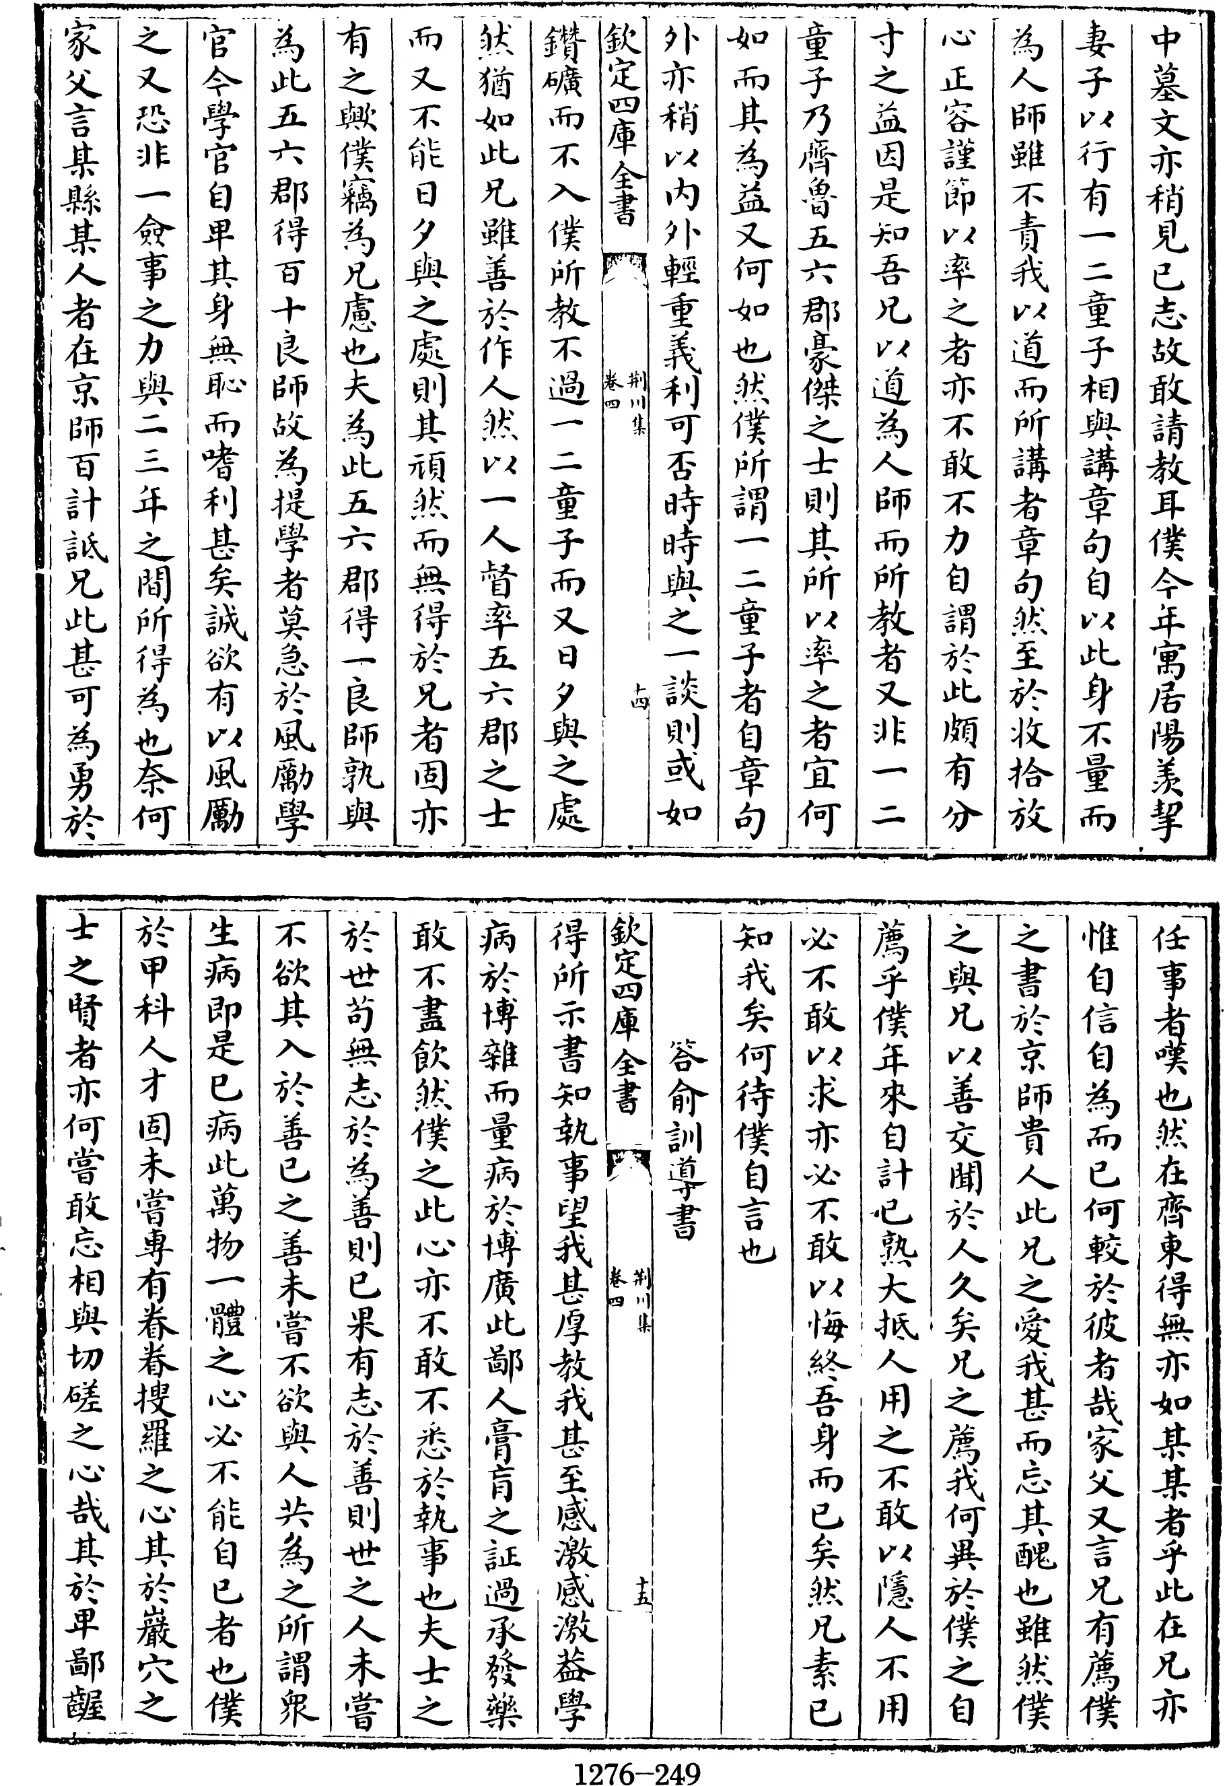 中墓文亦稍見已志故敢請教耳僕今年寓居陽羨挈
妻子以行有一二童子相與講章句自以此身不量而
為人師雖不責我以道而所講者章句然至於收拾放
心正容謹節以率之者亦不敢不力自謂於此頗有分
寸之益因是知吾兄以道為人師而所教者又非一二
童子乃齊魯五六郡豪傑之士則其所以率之者宜何
如而其為益又何如也然僕所謂一二童子者自章句
外亦稍以內外輕重義利可否時時與之一談則或如
欽定四庫全書
荆川集
卷四
十四
鑽礦而不入僕所教不過一二童子而又日夕與之處
然猶如此兄雖善於作人然以一人督率五六郡之士
而又不能日夕與之處則其頑然而無得於兄者固亦
有之歟僕竊為兄慮也夫為此五六郡得一良師孰與
為此五六郡得百十良師故為提學者莫急於風勵學
官今學官自卑其身無恥而嗜利甚矣誠欲有以風勵
之又恐非一僉事之力與二三年之間所得為也奈何
家父言某縣某人者在京師百計詆兄此甚可為勇於
任事者嘆也然在齊東得無亦如某某者乎此在兄亦
惟自信自為而已何較於彼者哉家父又言兄有薦僕
之書於京師貴人此兄之愛我甚而忘其醜也雖然僕
之與兄以善交聞於人久矣兄之薦我何異於僕之自
薦乎僕年來自計已熟大抵人用之不敢以隱人不用
必不敢以求亦必不敢以悔終吾身而已矣然兄素已
知我矣何待僕自言也
答俞訓導書
欽定四庫全書
荆川集
卷四
十五
得所示書知執事望我甚厚教我甚至感激感激益學
病於博雜而量病於博廣此鄙人膏肓之証過承發藥
敢不盡飲然僕之此心亦不敢不悉於執事也夫士之
於世苟無志於為善則已果有志於善則世之人未嘗
不欲其入於善已之善未嘗不欲與人共為之所謂衆
生病即是已病此萬物一體之心必不能自已者也僕
於甲科人才固未嘗專有眷眷搜羅之心其於巖穴之
士之賢者亦何嘗敢忘相與切磋之心哉其於卑鄙齷
1276-249